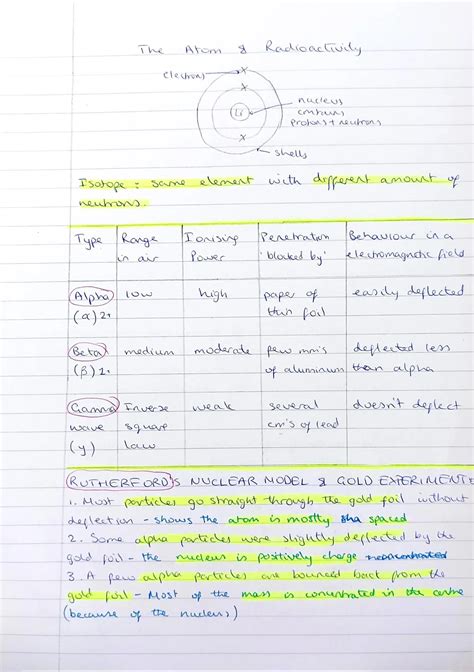 The Atom & Radioactivity
electrons
nucleus
contains
protons + neutrons
Li
shells
Isotope : same element with different amount of
neutrons.
Type Range in air Ionising Power Penetration 'blocked by' Behaviour in a electromagnetic field
Alpha (α) 2+ low high paper of thin foil easily deflected
Beta (β) medium moderate few mm's of aluminum deflected less than alpha
Gamma wave (γ) Inverse square law weak several cm's of lead doesn't deflect
RUTHERFORD'S NUCLEAR MODEL & GOLD EXPERIMENT
1. Most particles go straight through the gold foil without
deflection - shows the atom is mostly spaced
2. Some alpha particles were slightly deflected by the
gold foil - the nucleus is positively charge
3. A few alpha particles are bounced back from the
gold foil - Most of the mass is concentrated in the centre
(because of the nucleus)